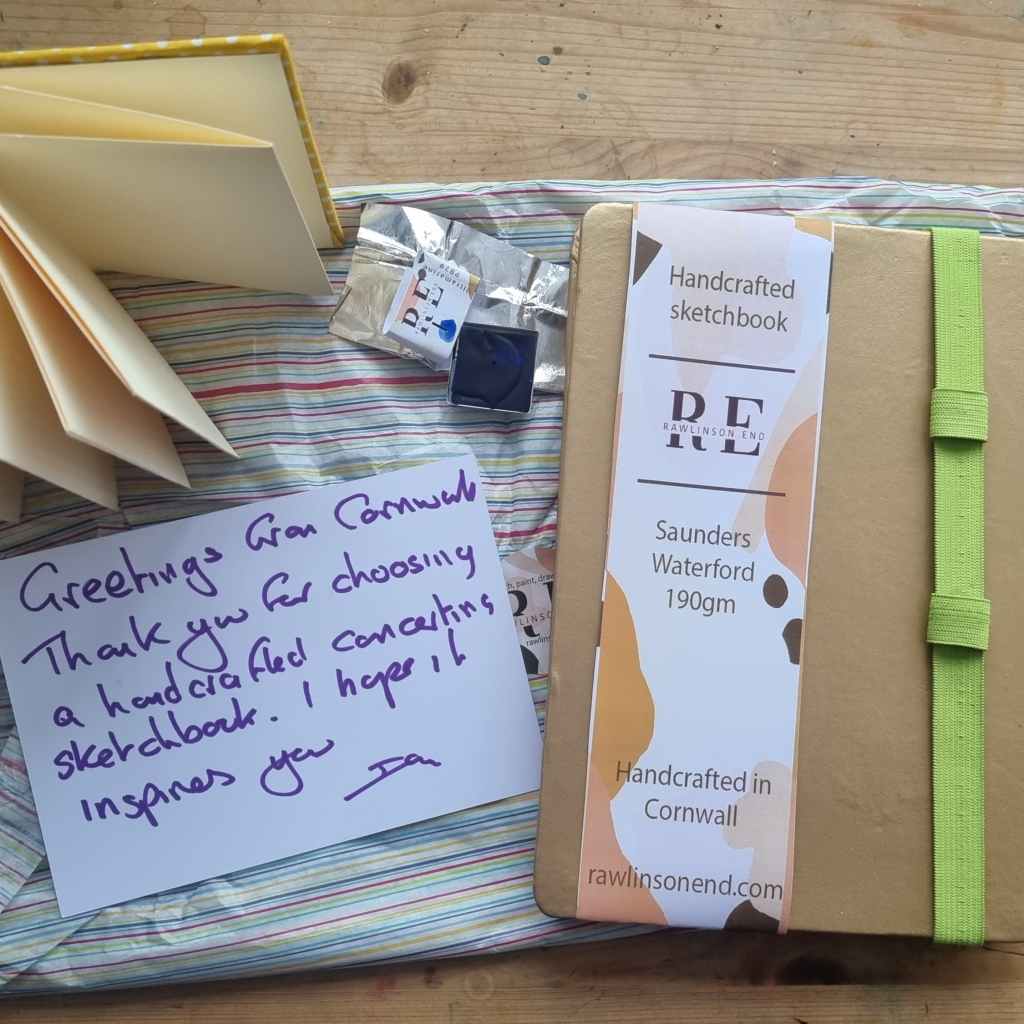 Greetings from Cornwall
Thank you for choosing
a handcrafted concertina
sketchbook. I hope it
inspires you
Ian
Handcrafted
sketchbook
RE
RAWLINSON END
Saunders
Waterford
190gm
Handcrafted in
Cornwall
rawlinsonend.com
RE
paint, draw
R